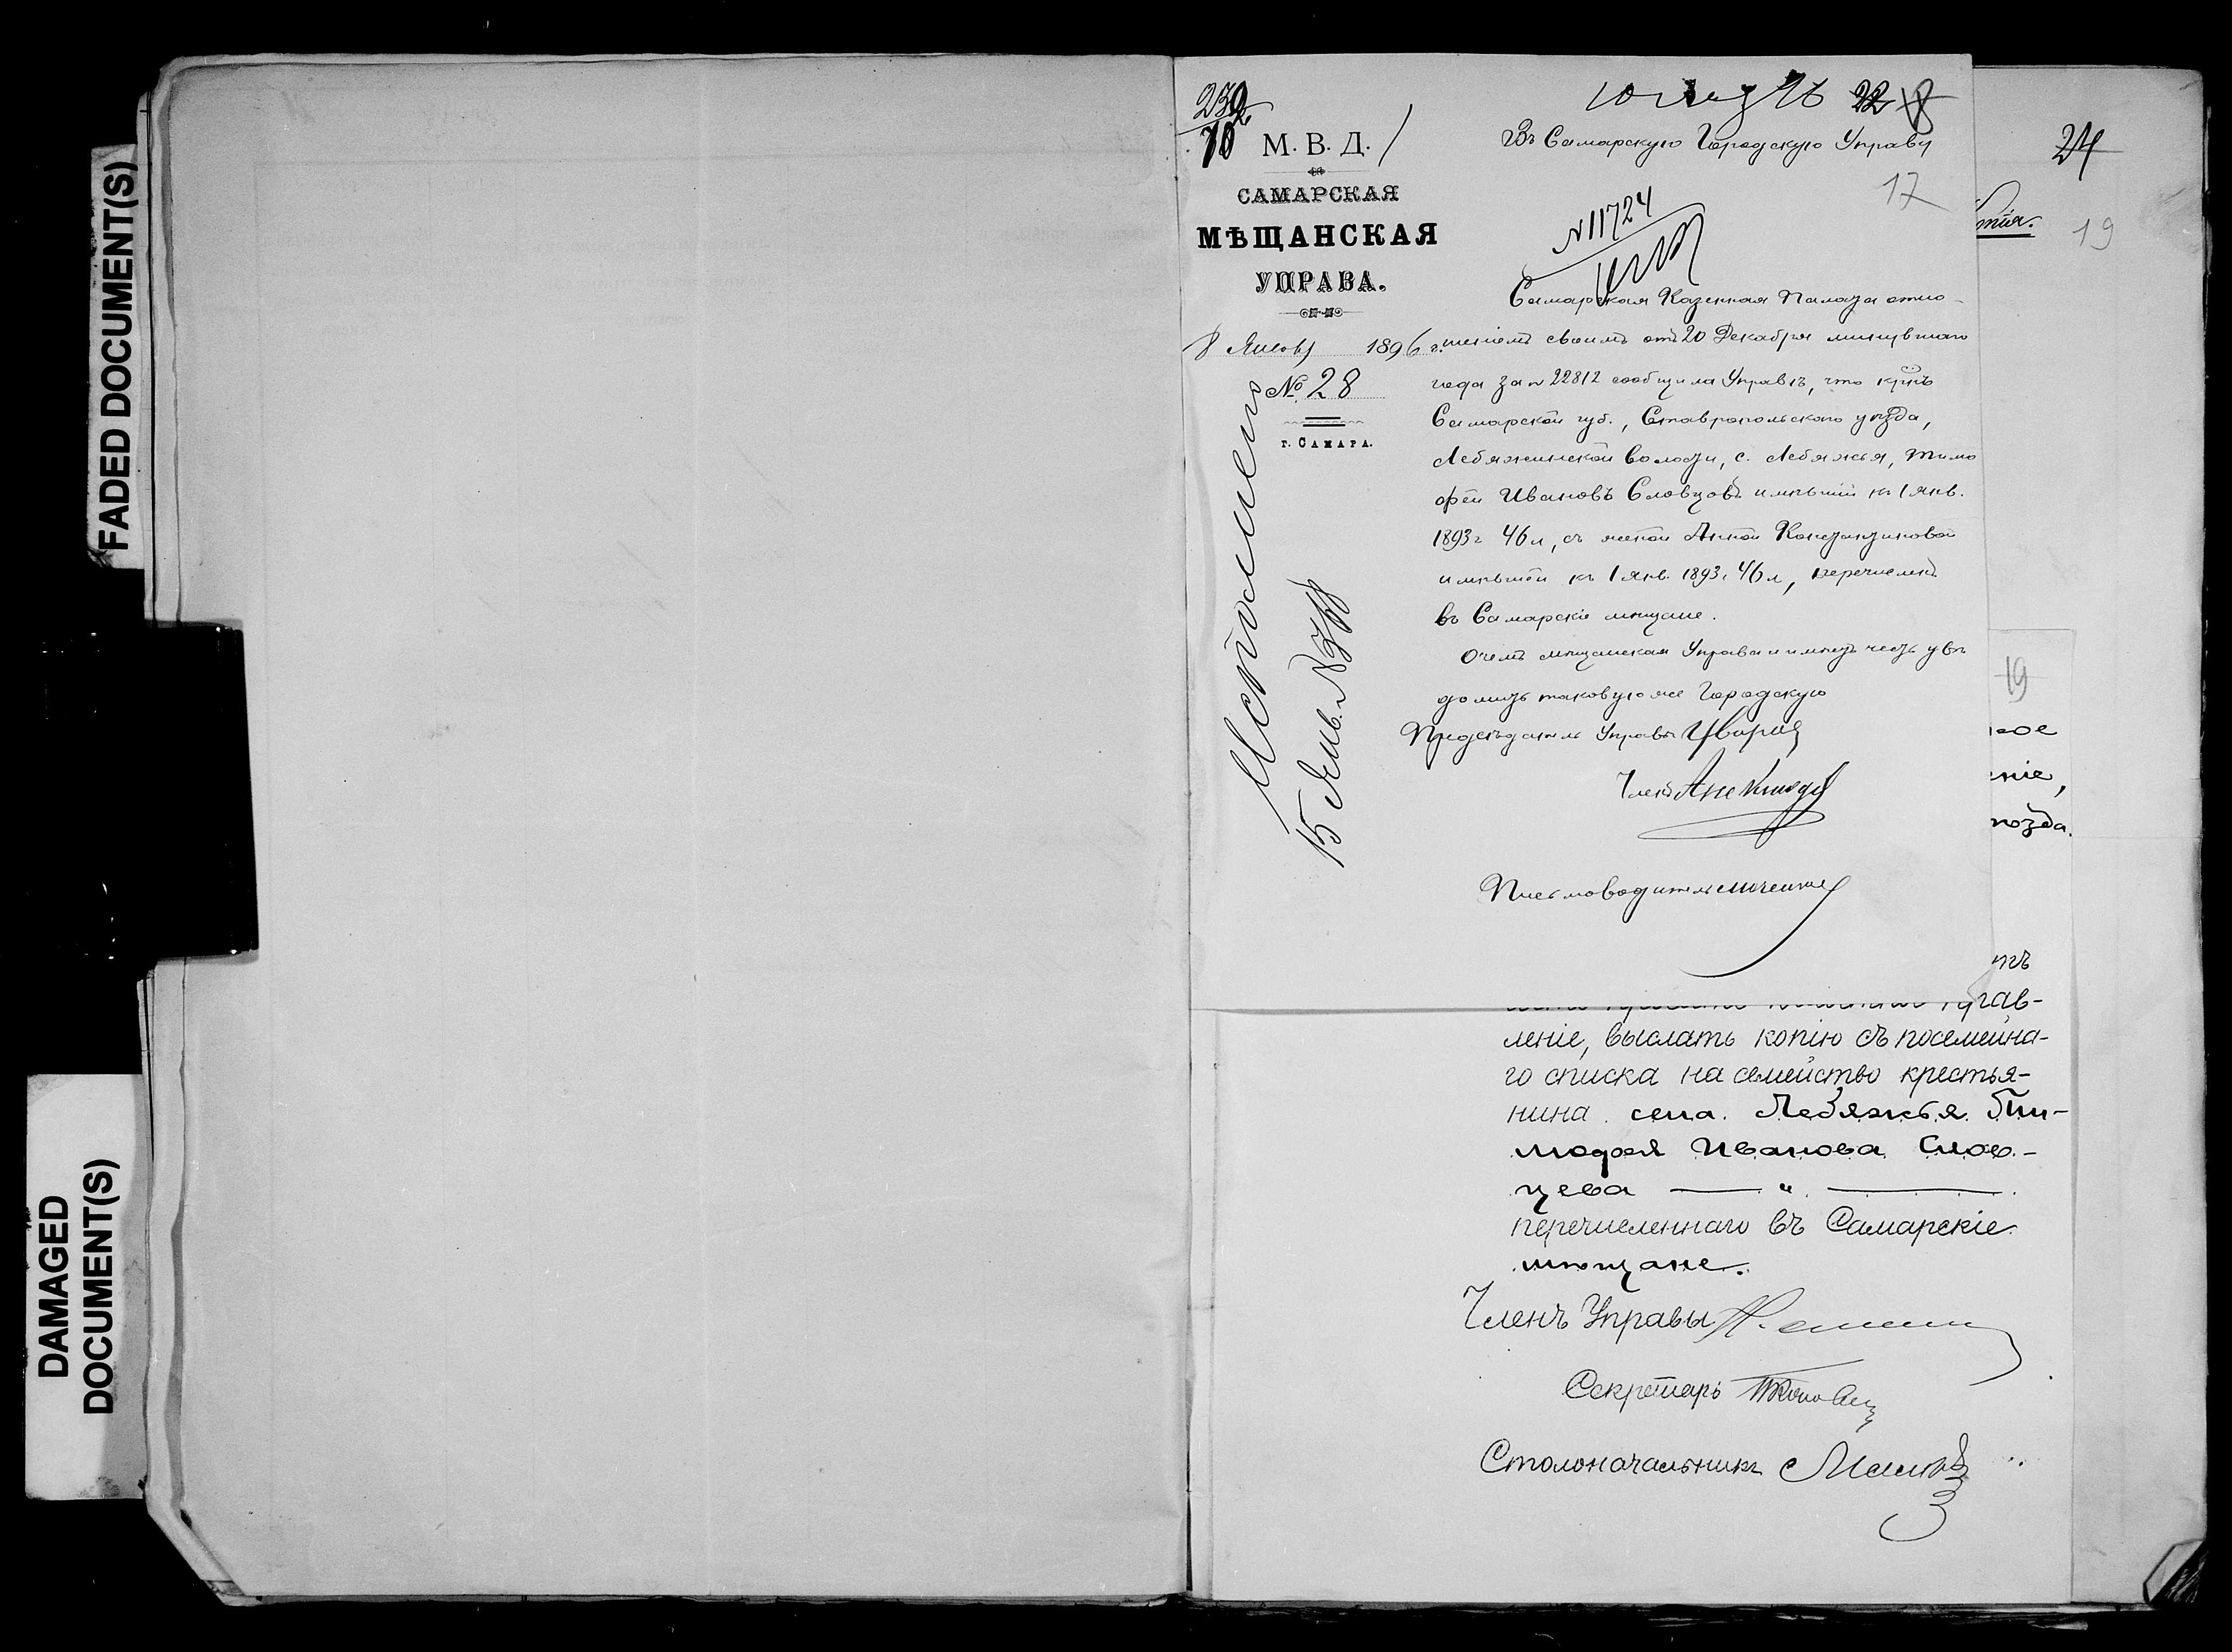 FADED DOCUMENT(S)
DAMAGED
DOCUMENT(S)
М. В. Д.
САМАРСКАЯ
МѢЩАНСКАЯ
УПРАВА.
8 Января 1896 г.
№ 28
г. САМАРА.
Исполнено
15 Янв. №
22
Въ Самарскую Городскую Управу
17
N 11724
Самарская Казенная Палата отно-
шеніемъ своимъ отъ 20 Декабря минувшаго
года за N 22812 сообщила Управѣ, что кр-нъ
Самарской губ., Ставропольскаго уѣзда,
Лебяжинской волости, с. Лебяжья, Тимо
фей Ивановъ Словцовъ имѣвшій къ 1 янв.
1893 г 46 л, съ женой Анной Константиновой
имѣвшей къ 1 янв. 1893 г 46 л, перечисленъ
въ Самарскіе мѣщане.
О чемъ мѣщанская Управа и имѣетъ честь увѣ
домить таковую же Городскую
Предсѣдатель Управы
Членъ
Письмоводитель
24
19
19
ное
еніе,
ѣзда.
тъ
Прав-
леніе, выслать копію съ посемейна-
го списка на семейство крестья-
нина села Лебяжья Ти-
мофея Иванова Слов-
цева — " —
перечисленнаго въ Самарскіе
мѣщане.
Членъ Управы
Секретарь
Столоначальникъ